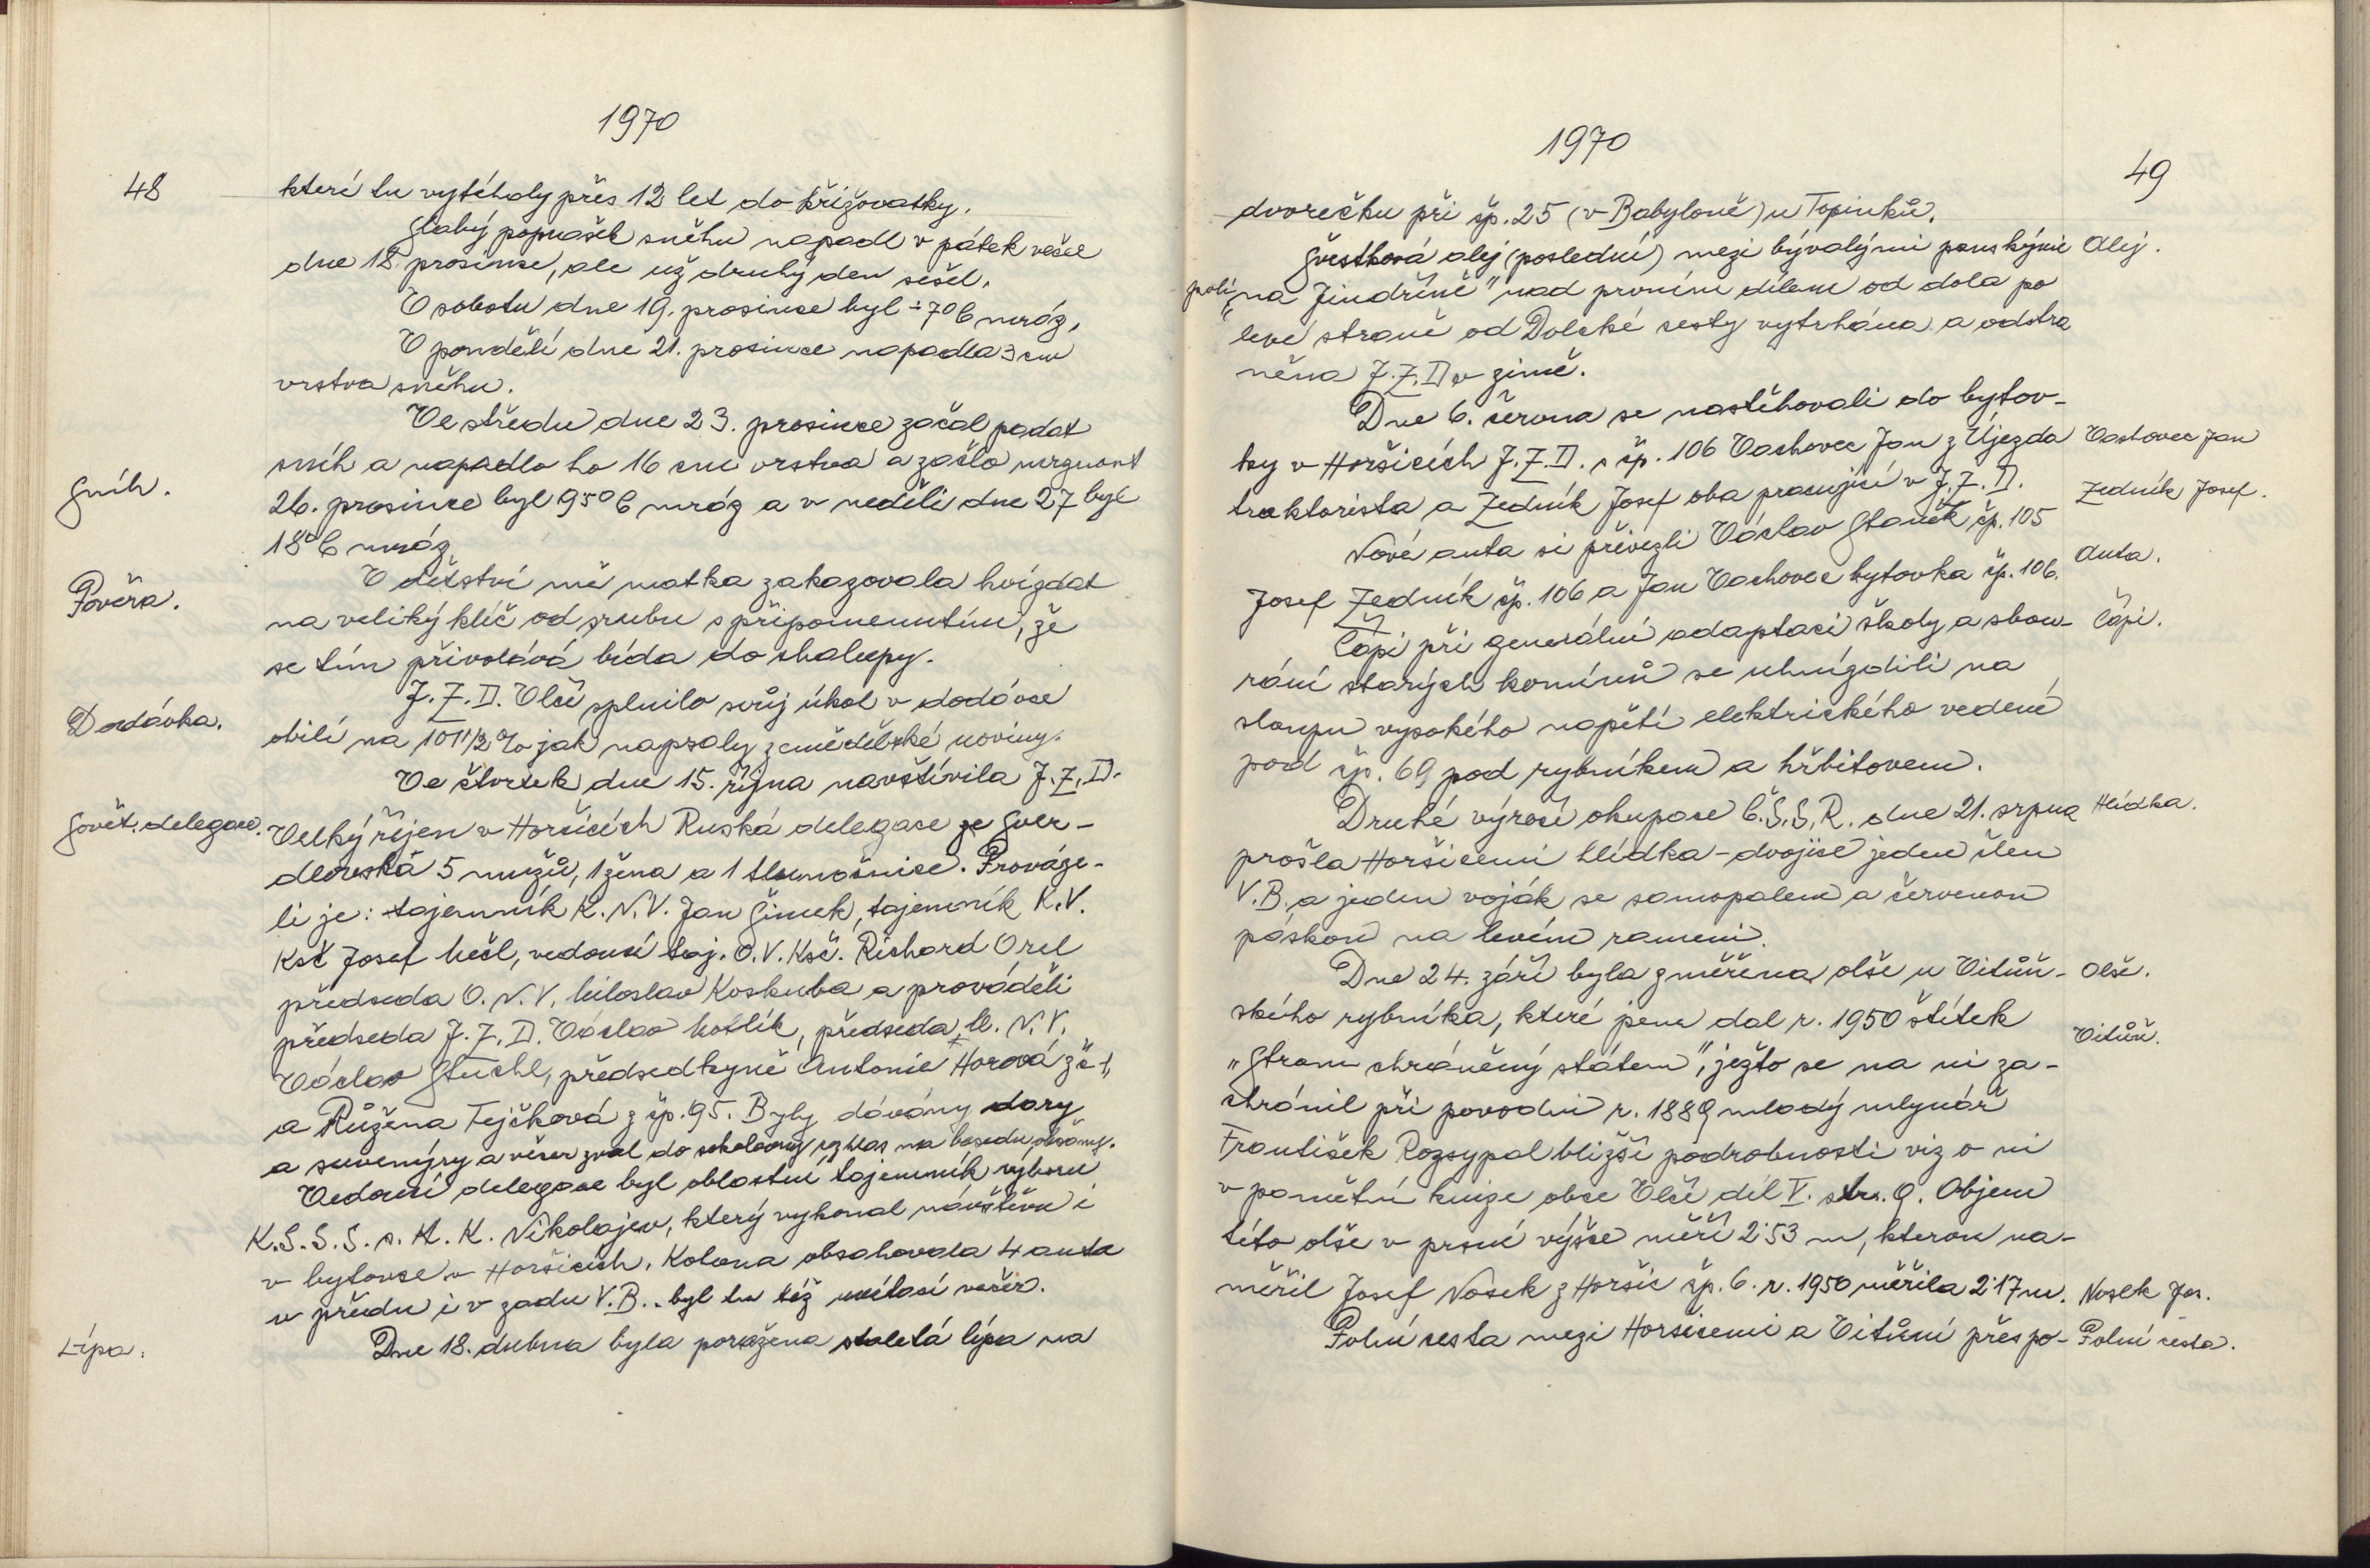 1970
48
které tu vytéhaly přes 12 let do křižovatky.
Slabý poprašek sněhu napadl v pátek večer
dne 18. prosince, ale už druhý den sešel.
V sobotu dne 19. prosince byl -7°C mráz,
V pondělí dne 21. prosince napadla 3 cm
vrstva sněhu.
Ve středu dne 23. prosince začal padat
sníh a napadlo ho 16 cm vrstva a začlo mrznout
Sníh.
26. prosince byl 95°C mráz a v neděli dne 27 byl
18°C mráz
V dětství mě matka zakazovala hvízdat
Pověra.
na veliký klíč od srubu s připomenutím, že
se tím přivolává bída do chalupy.
J.Z.D. Vlčí splnilo svůj úkol v dodávce
Dodávka.
obilí na 101 1/2 % jak napsaly zemědělské noviny.
Ve čtvrtek dne 15. října navštívila J.Z.D.
Sovět. delegace.
Velký říjen v Horšicích Ruská delegace ze Sver-
dlovska 5 mužů, 1 žena a 1 tlumočnice. Prováze-
li je: tajemník K.N.V. Jan Šimek, tajemník K.V.
Ksč Josef Mečl, vedoucí taj. O.V. Ksč. Richard Orel
předseda O.N.V. Miloslav Koskuba a prováděli
předseda J.Z.D. Václav Kotlík, předseda M.N.V.
Václav Stuchl, předsedkyně Antonie Horová
a Růžena Tejčková z čp. 95. Byly dávány dary
a suvenýry a večer zval do sokolovny rozhlas na besedu občany.
Vedoucí delegace byl oblastní tajemník výboru
K.S.S.S. s. K. Nikolajev, který vykonal návštěvu i
v bytovce v Horšicích. Kolona obsahovala 4 auta
v předu i v zadu V.B. byl tu též uvítací večer.
Lípa.
Dne 18. dubna byla poražena staletá lípa na
1970
49
dvorečku při čp. 25 (v Babyloně) u Topinků.
Švestková alej (poslední) mezi bývalými panskými
Alej.
poli „na Jindřině" nad prvním dílem od dola po
levé straně od Dolcké cesty vytrhána a odstra
něna J.Z.D. v zimě.
Dne 6. června se nastěhovali do bytov-
ky v Horšicích J.Z.D. s čp. 106 Vachovec Jan z Újezda
Vachovec Jan
traktorista a Zedník Josef oba pracující v J.Z.D.
Zedník Josef.
Nové auta si přivezli Václav Staněk čp. 105
Auta.
Josef Zedník čp. 106 a Jan Vachovec bytovka čp. 106.
Čápi při generální adaptaci školy a sbou-
Čápi.
rání starých komínů se uhnízdili na
sloupu vysokého napětí elektrického vedené
pod čp. 69 pod rybníkem a hřbitovem.
Druhé výročí okupace Č.S.S.R. dne 21. srpna
Hlídka.
prošla Horšicemi hlídka – dvojice jeden člen
V.B. a jeden voják se samopalem a červenou
páskou na levém rameni.
Dne 24. září byla změřena olše u Vitůň-
Olše.
ského rybníka, které jsem dal r. 1950 štítek
Vitůň.
„Strom chráněný státem", ježto se na ni za-
chránil při povodni r. 1889 mladý mlynář
František Rozsypal bližší podrobnosti viz o ni
v pamětní knize obce Vlčí díl V. str. 9. Objem
této olše v prsní výšce měří 2.53 m, kterou na-
měřil Josef Nosek z Horšic čp. 6. r. 1950 měřila 2.17 m.
Nosek Jos.
Polní cesta mezi Horšicemi a Vitůní přes po-
Polní cesta.